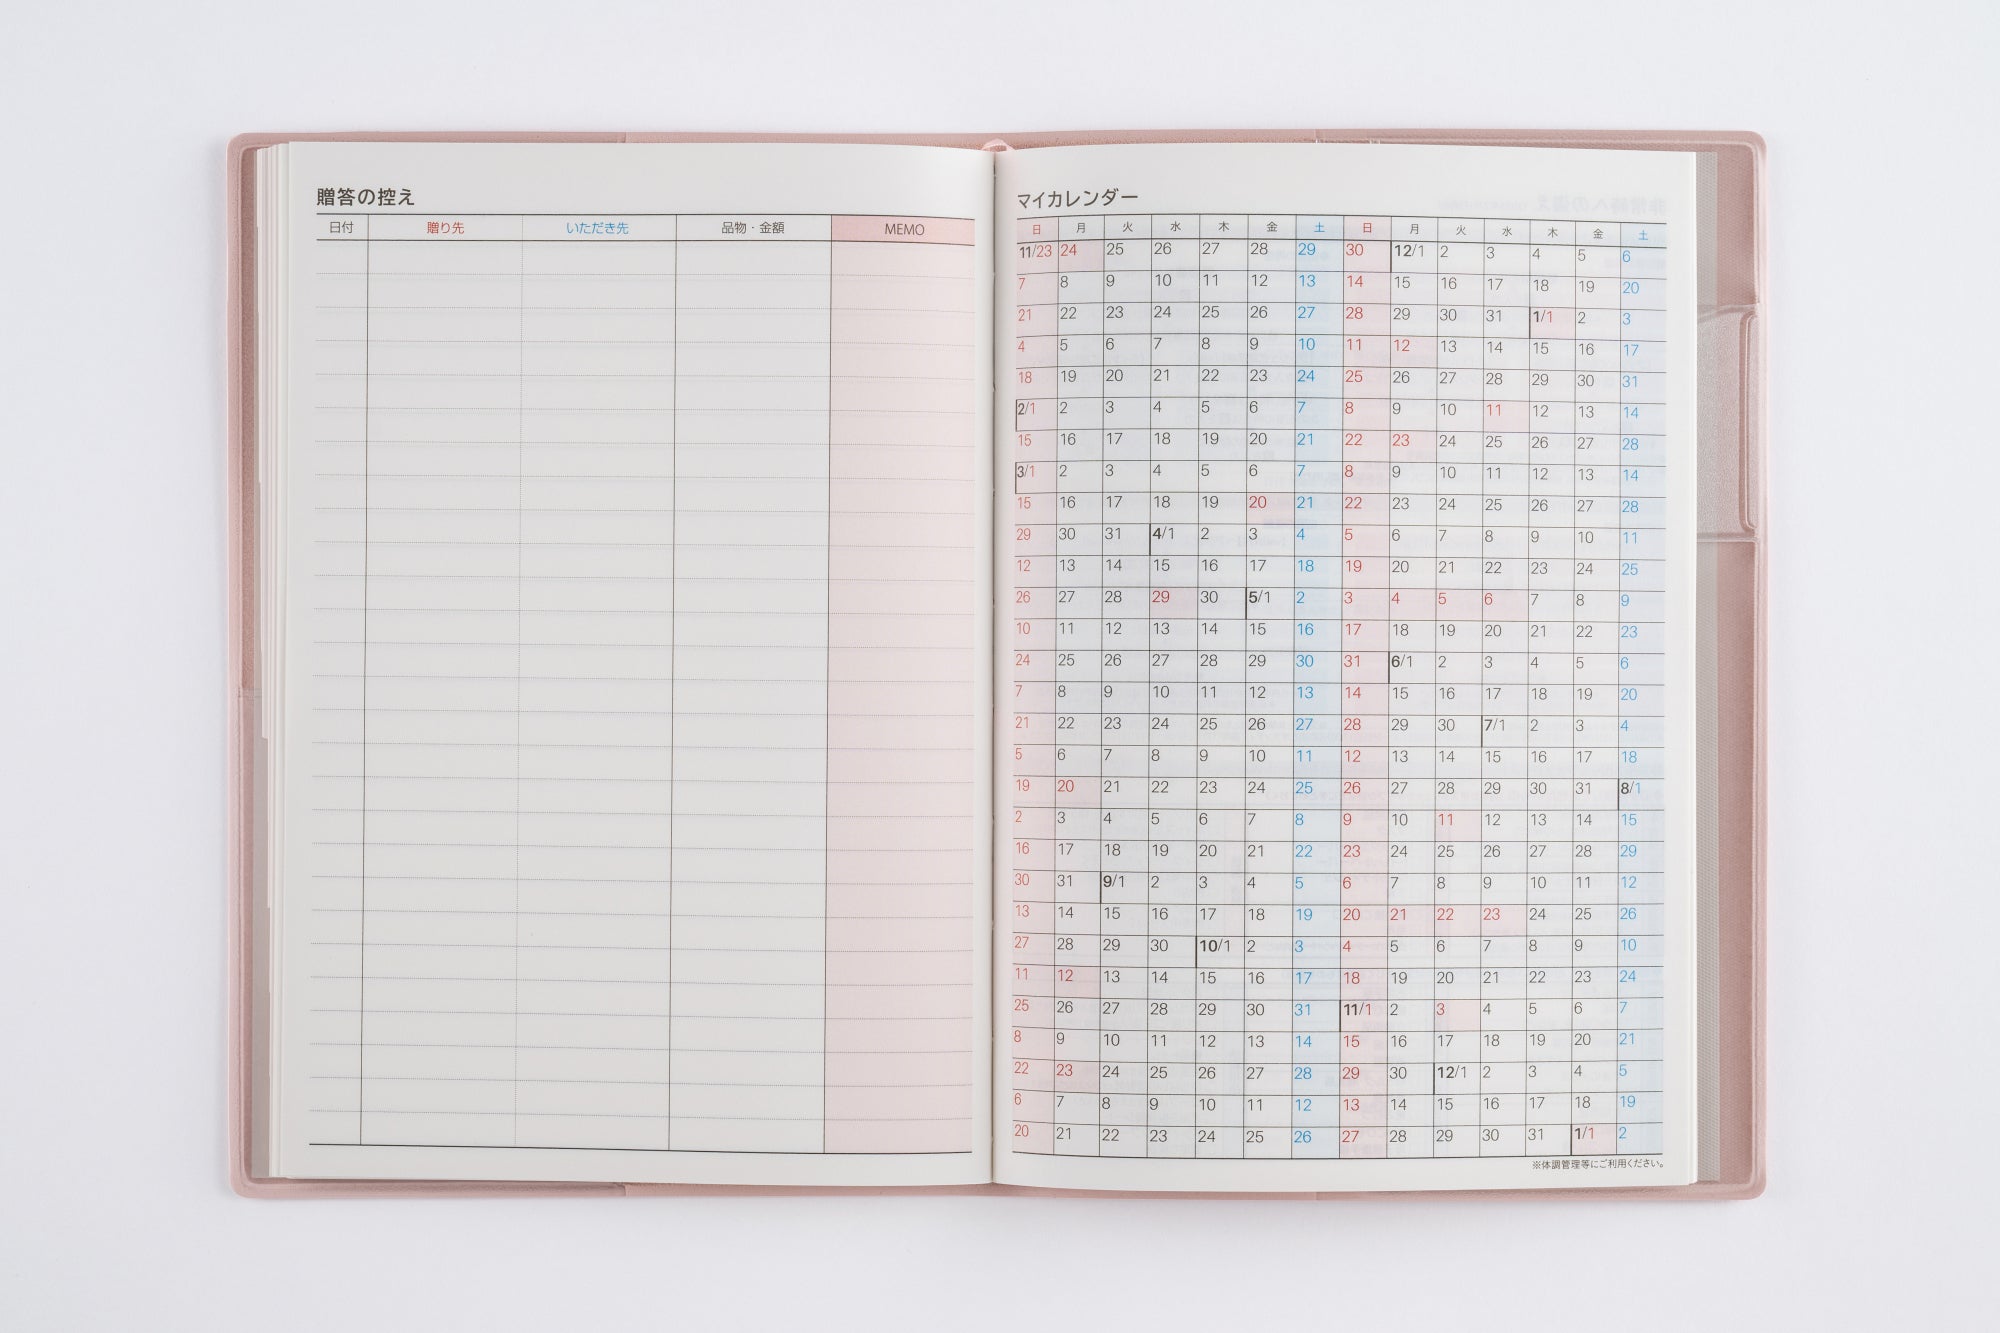 贈答の控え
日付 贈り先 いただき先 品物・金額 MEMO
マイカレンダー
日 月 火 水 木 金 土 日 月 火 水 木 金 土
11/23 24 25 26 27 28 29 30 12/1 2 3 4 5 6
7 8 9 10 11 12 13 14 15 16 17 18 19 20
21 22 23 24 25 26 27 28 29 30 31 1/1 2 3
4 5 6 7 8 9 10 11 12 13 14 15 16 17
18 19 20 21 22 23 24 25 26 27 28 29 30 31
2/1 2 3 4 5 6 7 8 9 10 11 12 13 14
15 16 17 18 19 20 21 22 23 24 25 26 27 28
3/1 2 3 4 5 6 7 8 9 10 11 12 13 14
15 16 17 18 19 20 21 22 23 24 25 26 27 28
29 30 31 4/1 2 3 4 5 6 7 8 9 10 11
12 13 14 15 16 17 18 19 20 21 22 23 24 25
26 27 28 29 30 5/1 2 3 4 5 6 7 8 9
10 11 12 13 14 15 16 17 18 19 20 21 22 23
24 25 26 27 28 29 30 31 6/1 2 3 4 5 6
7 8 9 10 11 12 13 14 15 16 17 18 19 20
21 22 23 24 25 26 27 28 29 30 7/1 2 3 4
5 6 7 8 9 10 11 12 13 14 15 16 17 18
19 20 21 22 23 24 25 26 27 28 29 30 31 8/1
2 3 4 5 6 7 8 9 10 11 12 13 14 15
16 17 18 19 20 21 22 23 24 25 26 27 28 29
30 31 9/1 2 3 4 5 6 7 8 9 10 11 12
13 14 15 16 17 18 19 20 21 22 23 24 25 26
27 28 29 30 10/1 2 3 4 5 6 7 8 9 10
11 12 13 14 15 16 17 18 19 20 21 22 23 24
25 26 27 28 29 30 31 11/1 2 3 4 5 6 7
8 9 10 11 12 13 14 15 16 17 18 19 20 21
22 23 24 25 26 27 28 29 30 12/1 2 3 4 5
6 7 8 9 10 11 12 13 14 15 16 17 18 19
20 21 22 23 24 25 26 27 28 29 30 31 1/1 2
※体調管理等にご利用ください。